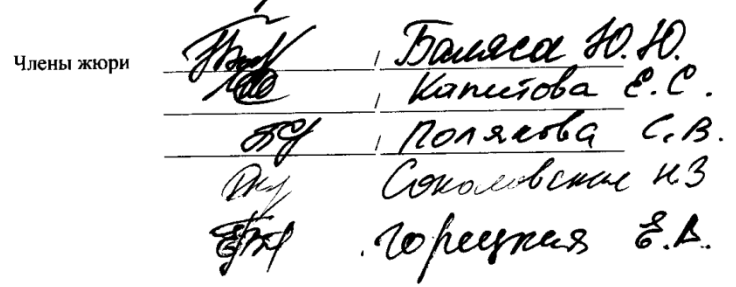 Члены жюри / Баляса Ю.Ю.
/ Капитова Е.С.
/ Полякова С.В.
Соколовская Н З
Горецкая Е.В.